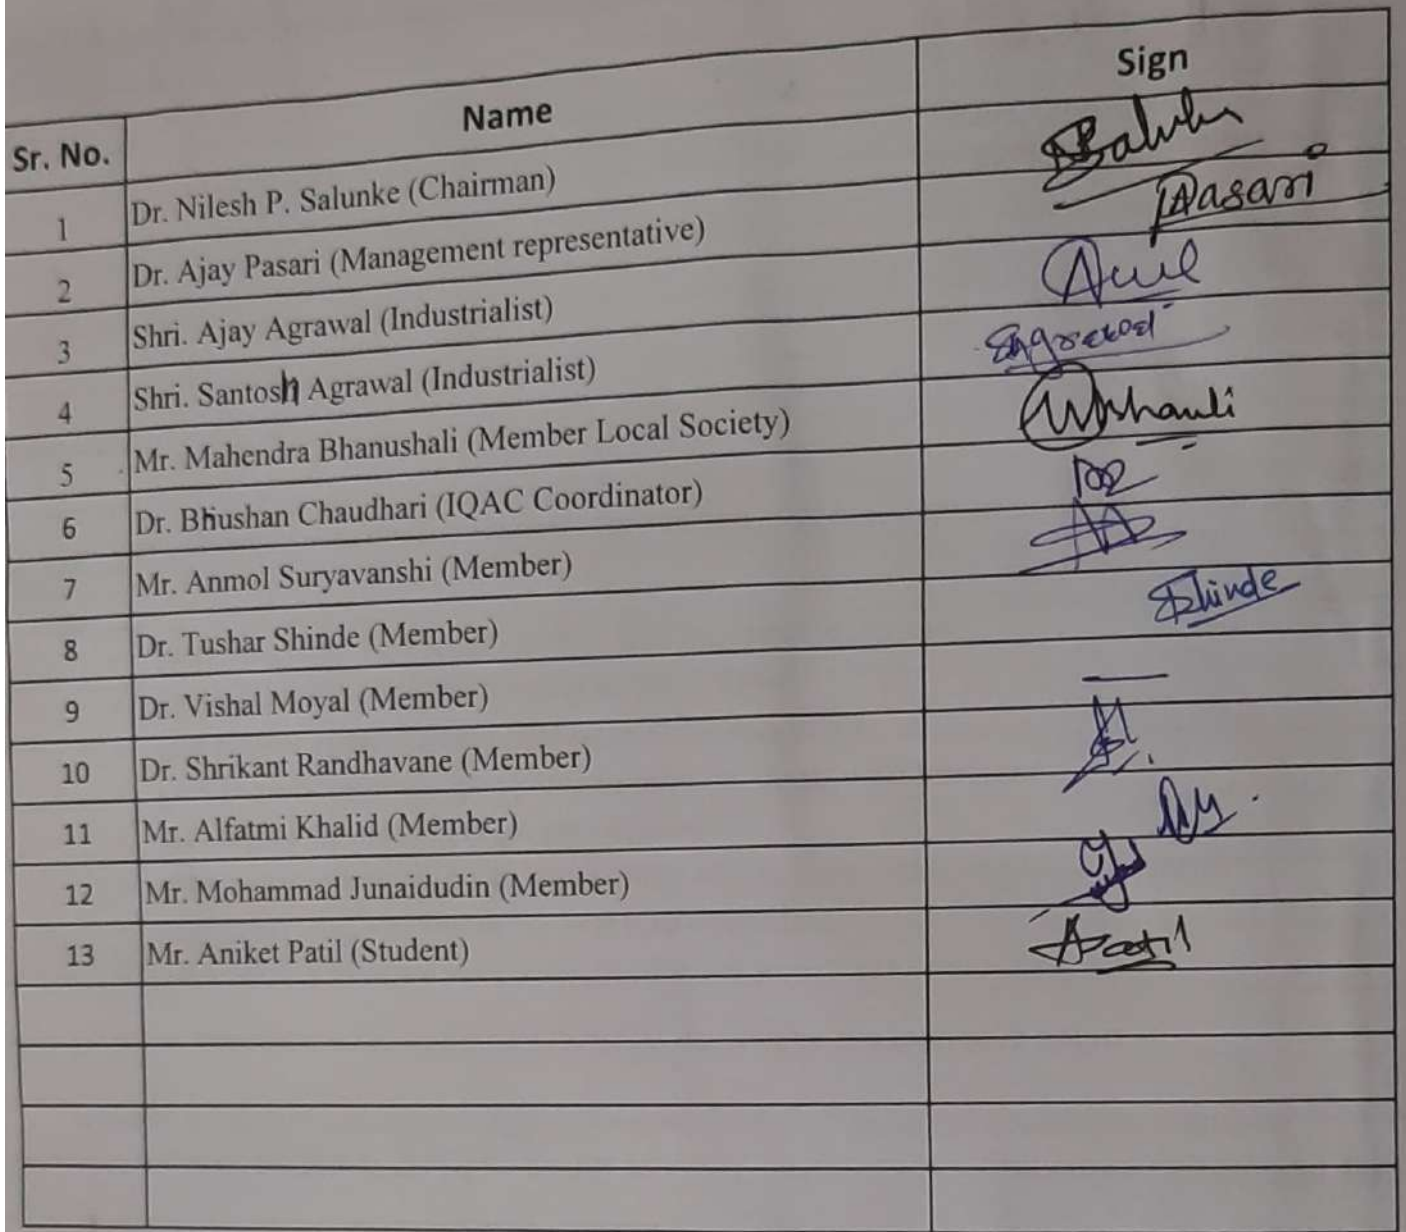 Sr. No. Name Sign
1 Dr. Nilesh P. Salunke (Chairman)
2 Dr. Ajay Pasari (Management representative) Pasari
3 Shri. Ajay Agrawal (Industrialist)
4 Shri. Santosh Agrawal (Industrialist)
5 Mr. Mahendra Bhanushali (Member Local Society)
6 Dr. Bhushan Chaudhari (IQAC Coordinator)
7 Mr. Anmol Suryavanshi (Member)
8 Dr. Tushar Shinde (Member) Shinde
9 Dr. Vishal Moyal (Member) —
10 Dr. Shrikant Randhavane (Member)
11 Mr. Alfatmi Khalid (Member)
12 Mr. Mohammad Junaidudin (Member)
13 Mr. Aniket Patil (Student) APatil